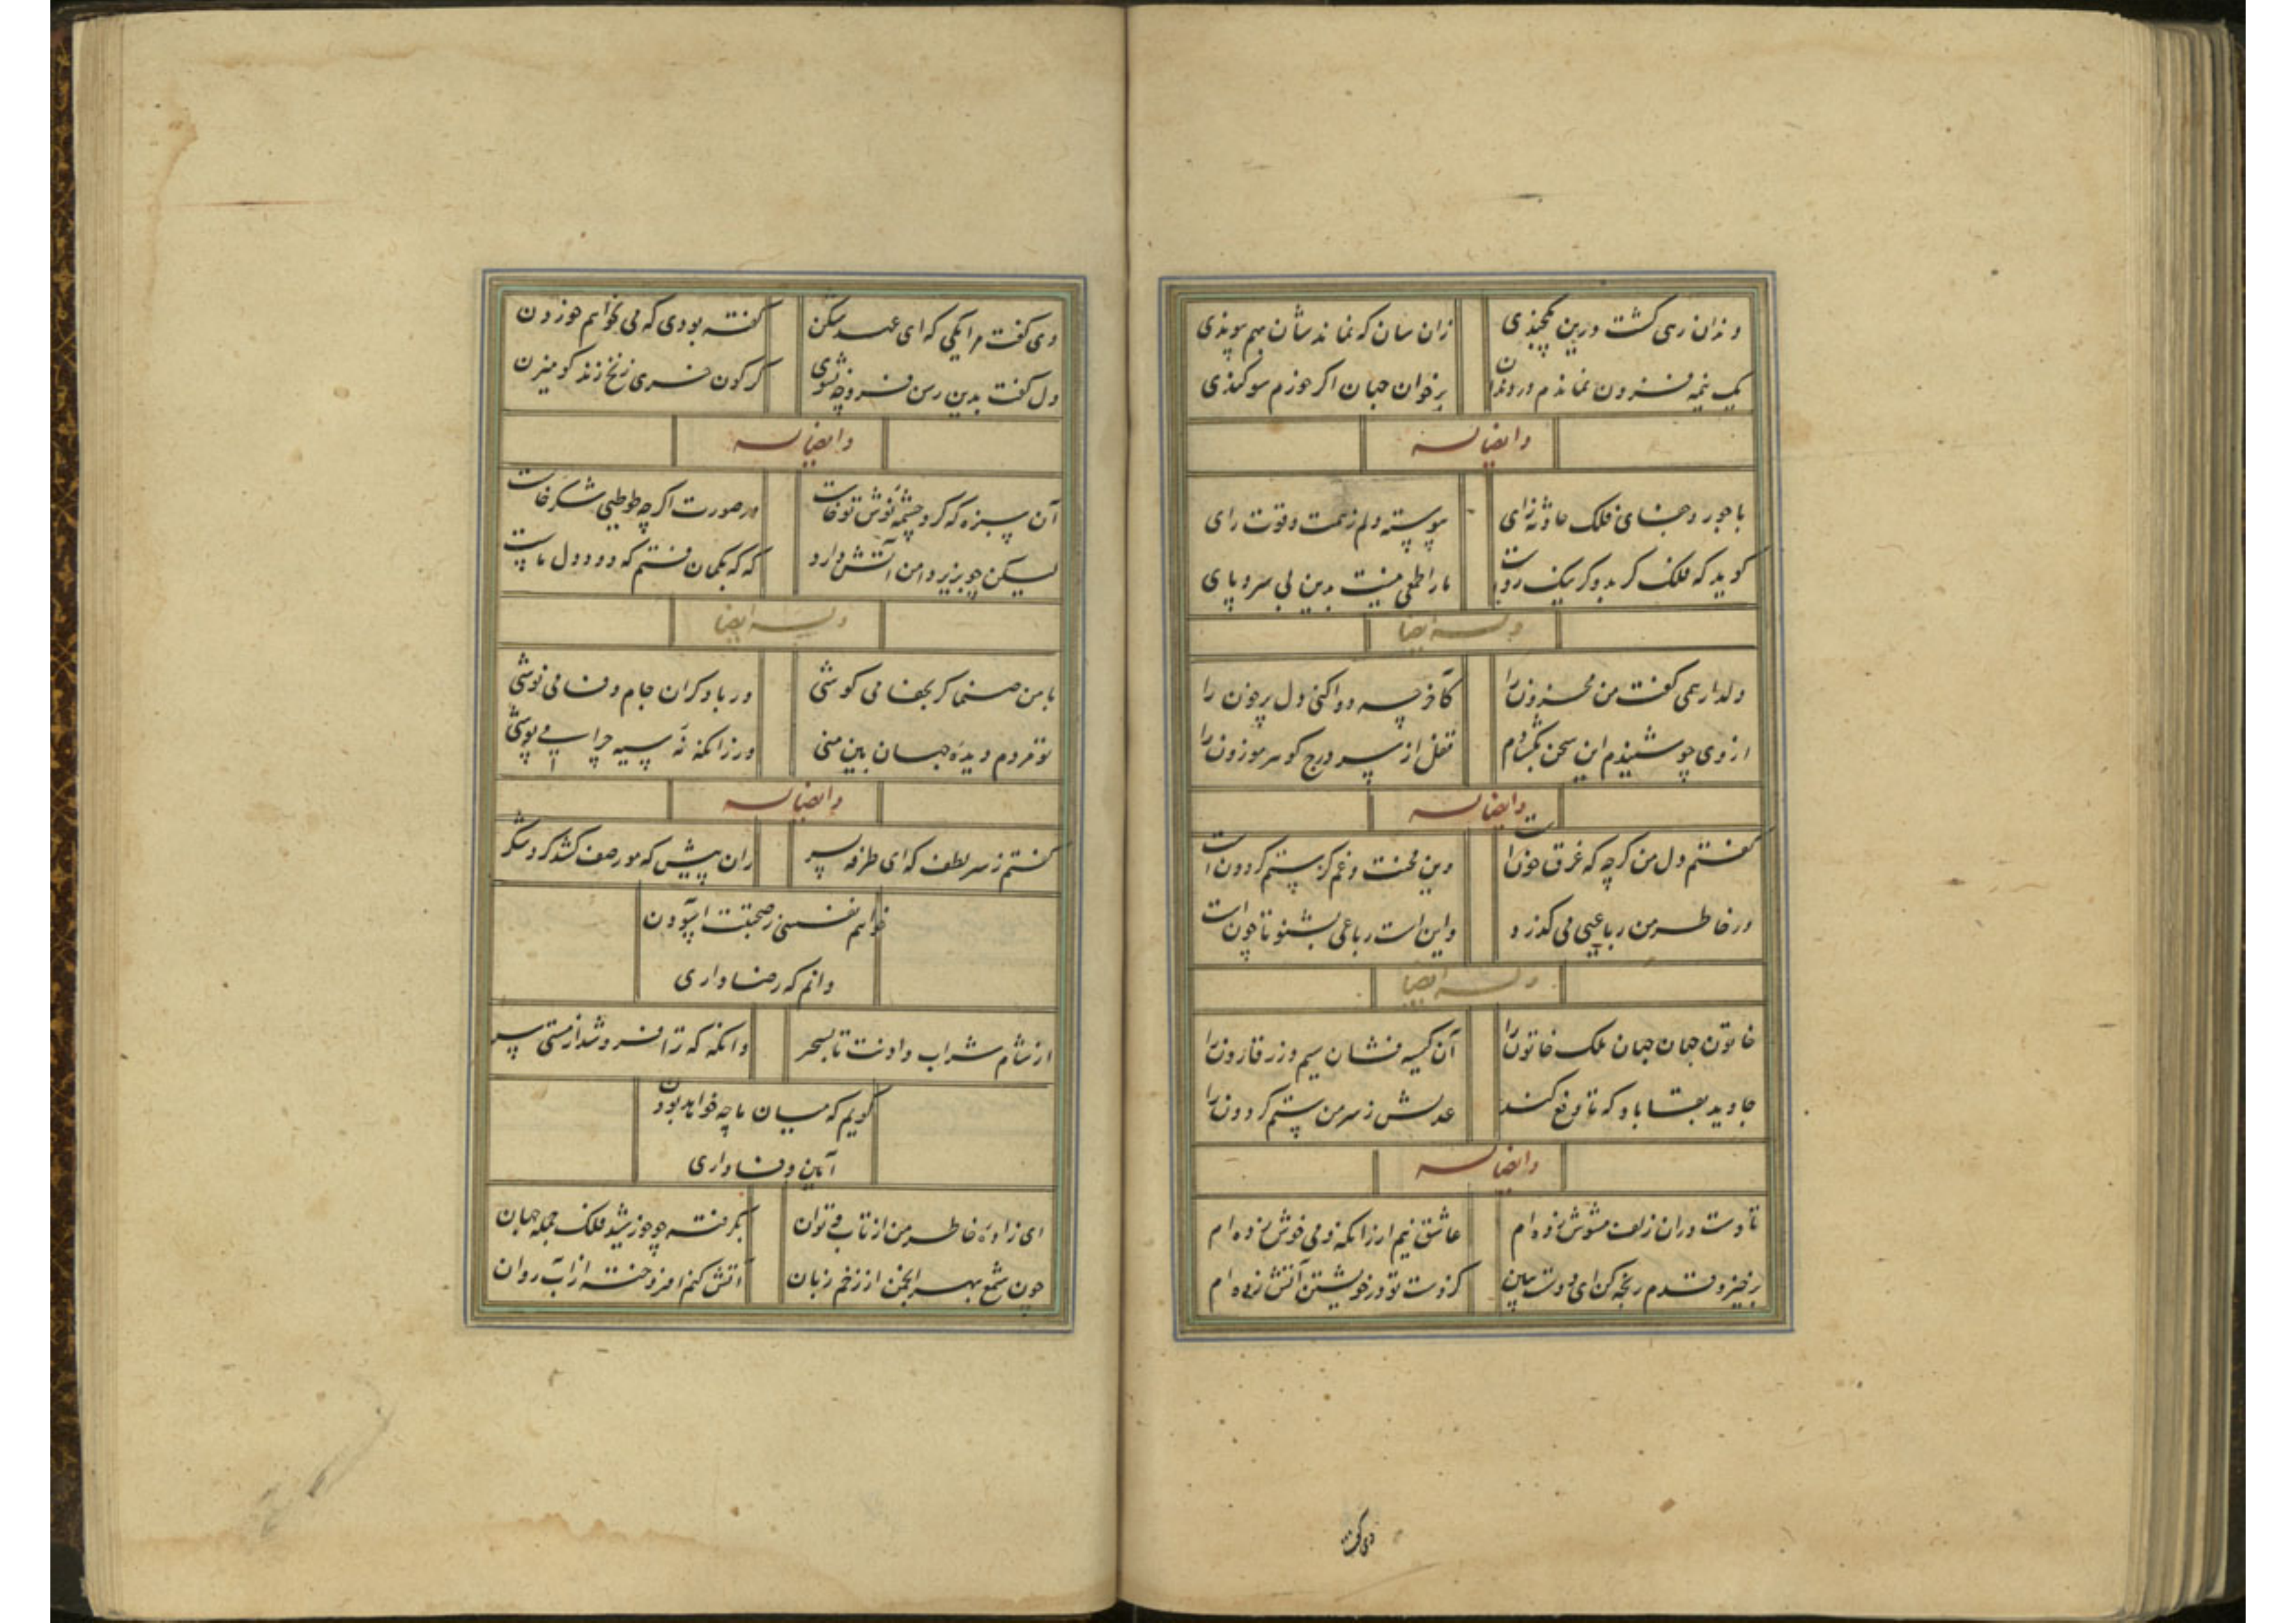 وندان رهی گشت درین زان سان که نماندشان بهم پیوندی
یک نیمه فزون نماندم در دندان بر خوان جهان اگر خورم سوکندی
وایضا له
با جور و جفای فلک حادثه زای پیوسته دلم زهمت وقوت رای
کوید که فلک کر بد وکر نیک روست مارا طمعی نیست بدین بی سر و پای
وله ایضا
دلدار همی کفت من محزون را کآخر چه دوا کنی دل پرخون را
از وی چو شنیدم این سخن بکشادم قفل از سر درج کوهر موزون را
وایضا له
کفتم دل من کرچه که غرق خونست وین محنت وغم کز ستم کردونست
در خاطر من رباعیی می کذرد واین است رباعی بشنو تا چونست
وله ایضا
خاتون جهان جهان ملک خاتون را آن کیسه فشان سیم وزر قارون را
جاوید بقا باد که تا دفع کند عدلش زسر من ستم کردون را
وایضا له
تا دست دران زلف مشوش زده ام عاشق نیم ار زانکه دمی خوش زده ام
برخیز وقدم رنجه کن ای دوست ببین کز دست تو در خویشتن آتش زده ام
دی کفت
دی کفت مرا یکی که ای عهد شکن کفته بودی که می نخواهم خور دن
دل کفت بدین رسن فرو چه نشوی کر کون خری زنخ زند کو میزن
وایضا له
آن سبزه که کرد چشمه نوش تو خاست در صورت اکرچه طوطیی شکرخاست
لیکن چو بزیر دامن آتش دارد که که بکمان فتم که دود دل ماست
وله ایضا
با من صنما کر بجفا می کوشی ور با دکران جام وفا می نوشی
تو مردم دیده جهان بین منی ور زانکه نه سیه چرا می پوشی
وایضا له
کفتم زسر لطف که ای طرفه پسر زان پیش که مور صف کشد کرد شکر
خواهم نفسی زصحبتت آسودن
دانم که رضا داری
از شام شراب دادنت تا بسحر وانکه که ترا فرو شد از مستی سر
کویم که میان ما چه خواهد بودن
آیین وفاداری
ای زاده خاطر من از تاب و توان بکرفته چو خورشید فلک جمله جهان
چون شمع بهر انجمن از زخم زبان آتش کنم افروخته از آب روان